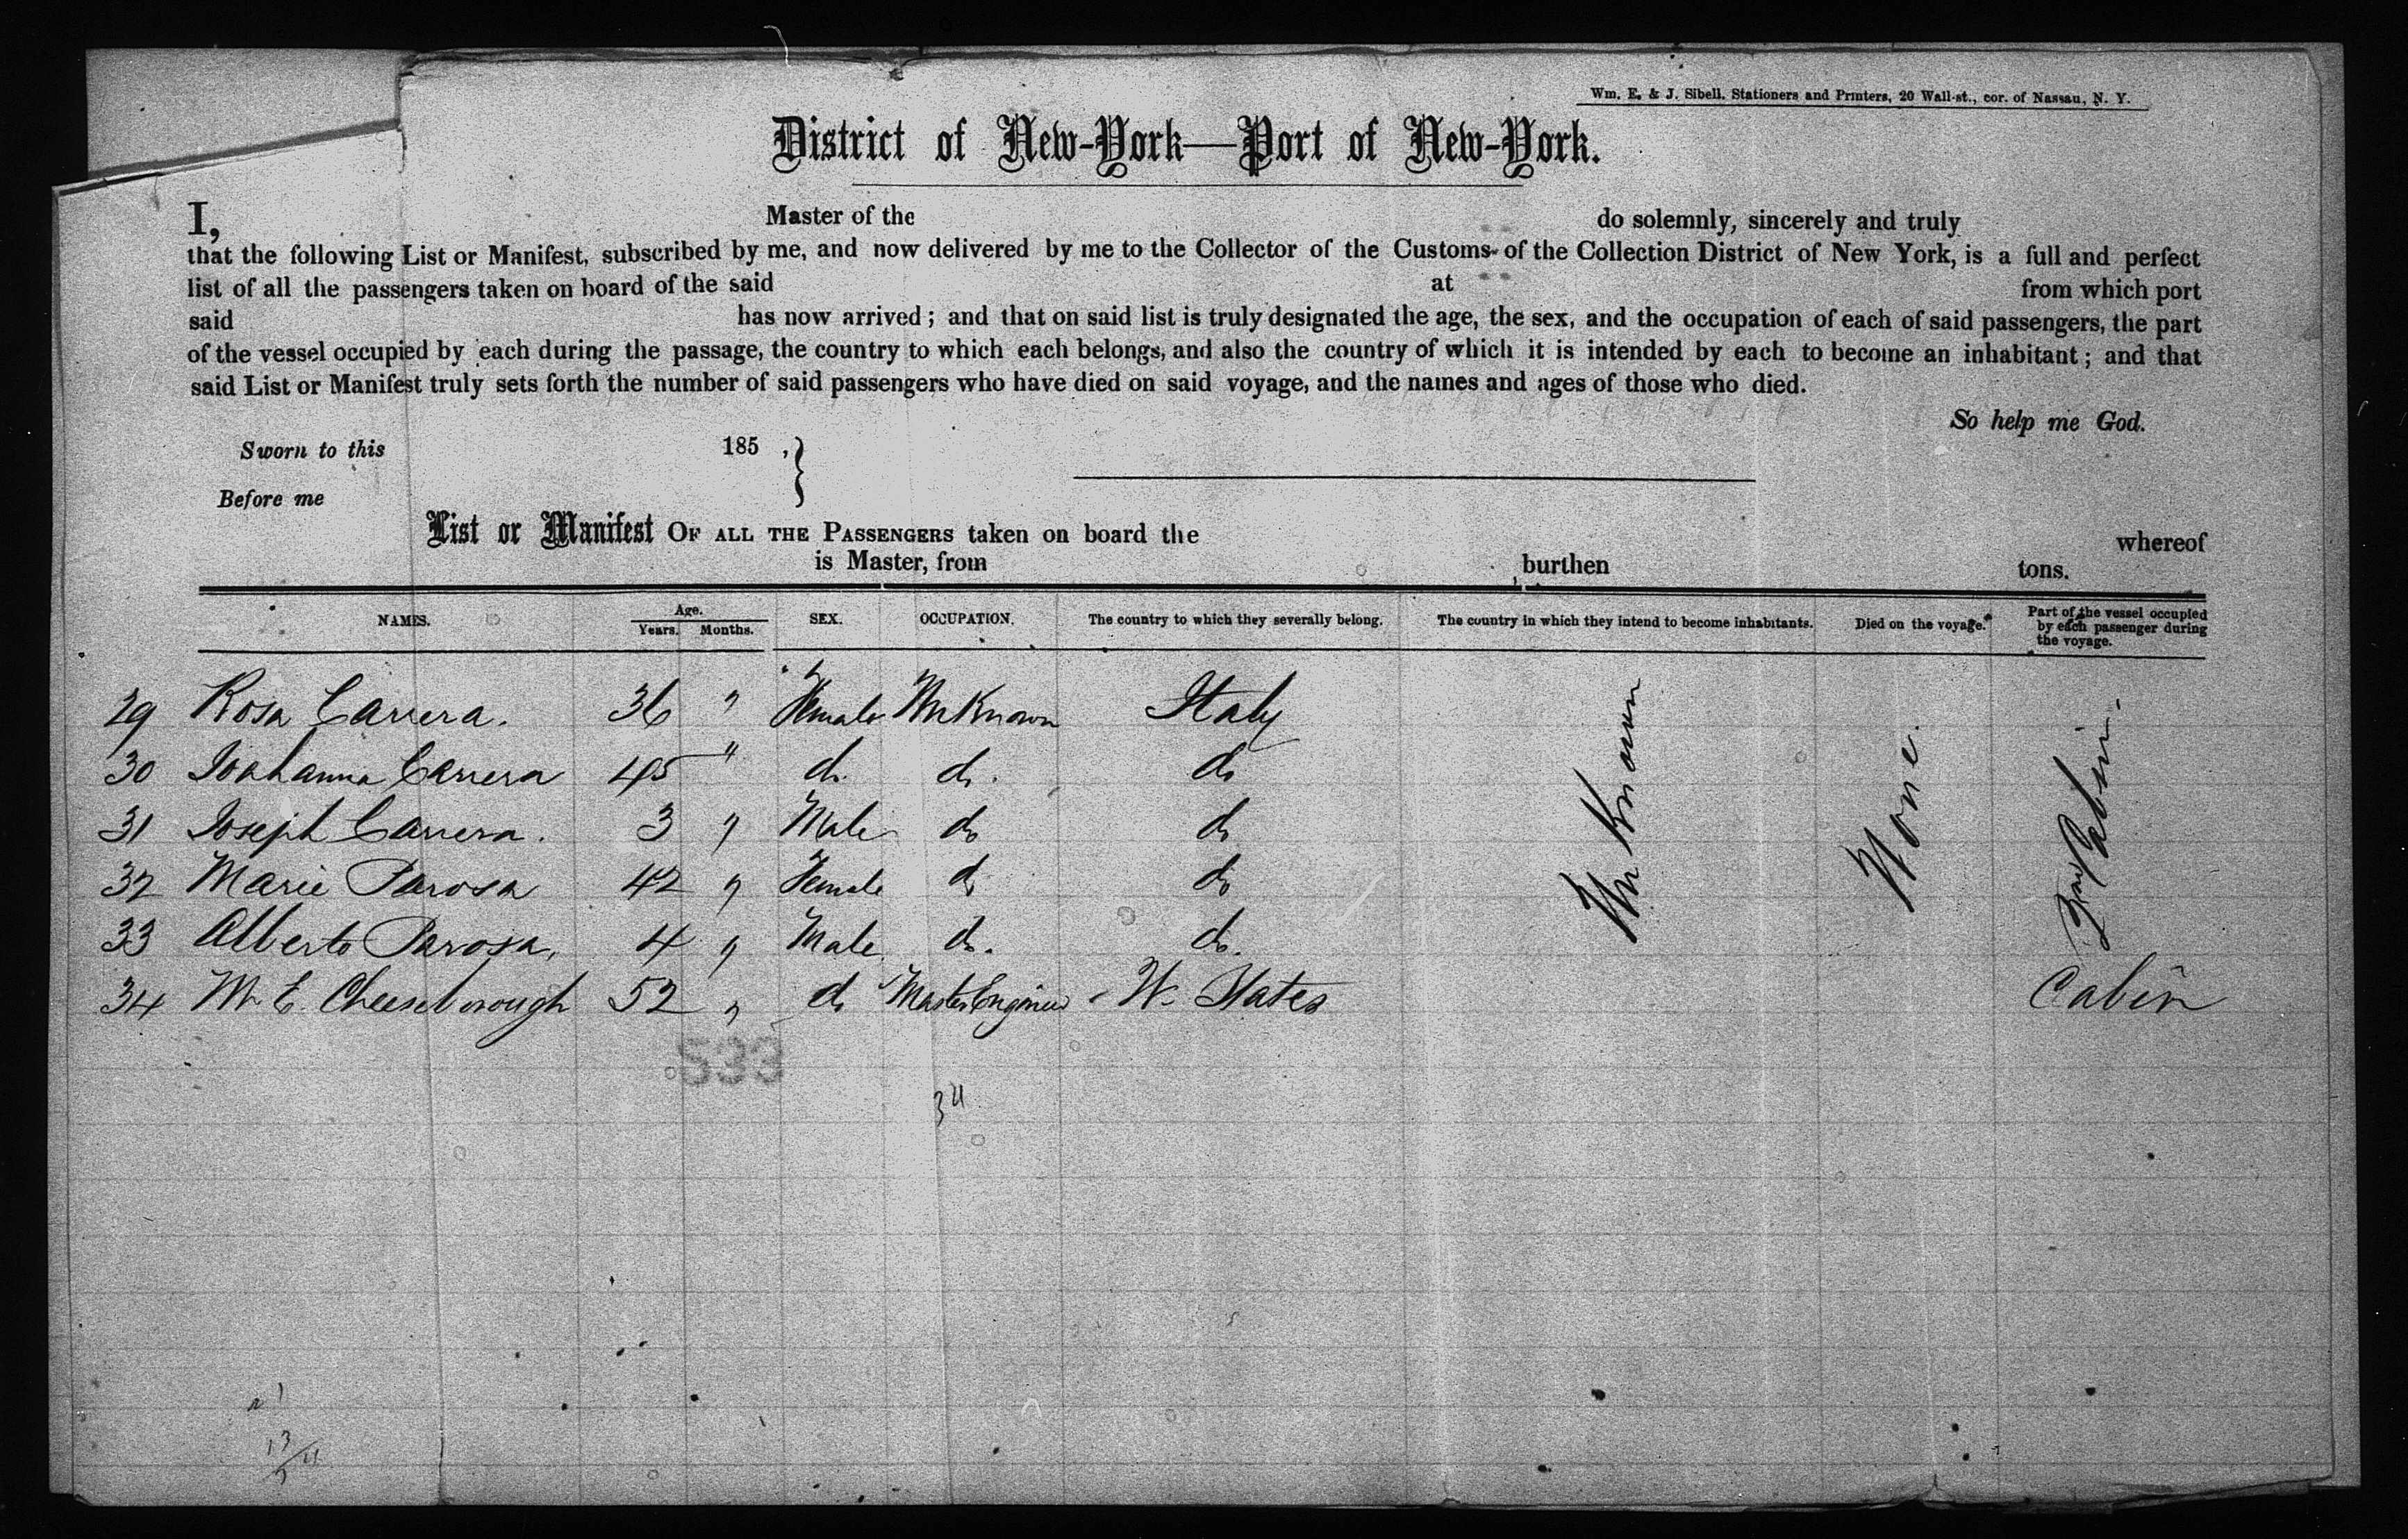 Wm. E. & J. Sibell, Stationers and Printers, 20 Wall-st., cor. of Nassau, N. Y.
District of New-York—Port of New-York.
I, Master of the do solemnly, sincerely and truly
that the following List or Manifest, subscribed by me, and now delivered by me to the Collector of the Customs of the Collection District of New York, is a full and perfect
list of all the passengers taken on board of the said at from which port
said has now arrived; and that on said list is truly designated the age, the sex, and the occupation of each of said passengers, the part
of the vessel occupied by each during the passage, the country to which each belongs, and also the country of which it is intended by each to become an inhabitant; and that
said List or Manifest truly sets forth the number of said passengers who have died on said voyage, and the names and ages of those who died.
So help me God.
Sworn to this 185 ,
Before me
List or Manifest OF ALL THE PASSENGERS taken on board the whereof
is Master, from , burthen tons.
NAMES. Age. Years. Months. SEX. OCCUPATION. The country to which they severally belong. The country in which they intend to become inhabitants. Died on the voyage. Part of the vessel occupied by each passenger during the voyage.
29 Rosa Carrera. 36 " Female UnKnown Italy
30 Joahanna Carrera 45 " do do. do
31 Joseph Carrera. 3 " Male do do
32 Marie Parosa 42 " Female do do
33 Alberto Parosa, 4 " Male do. do.
34 M. E. Cheeseborough 52 " do Master Engineer U. States Cabin
UnKnown
None.
Cabin.
533
34